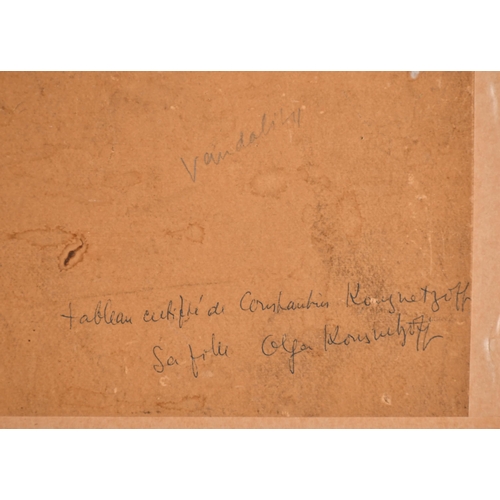 Vandalisy
tableau certifié de Constantin Kousnetzoff
Sa fille Olga Kousnetzoff